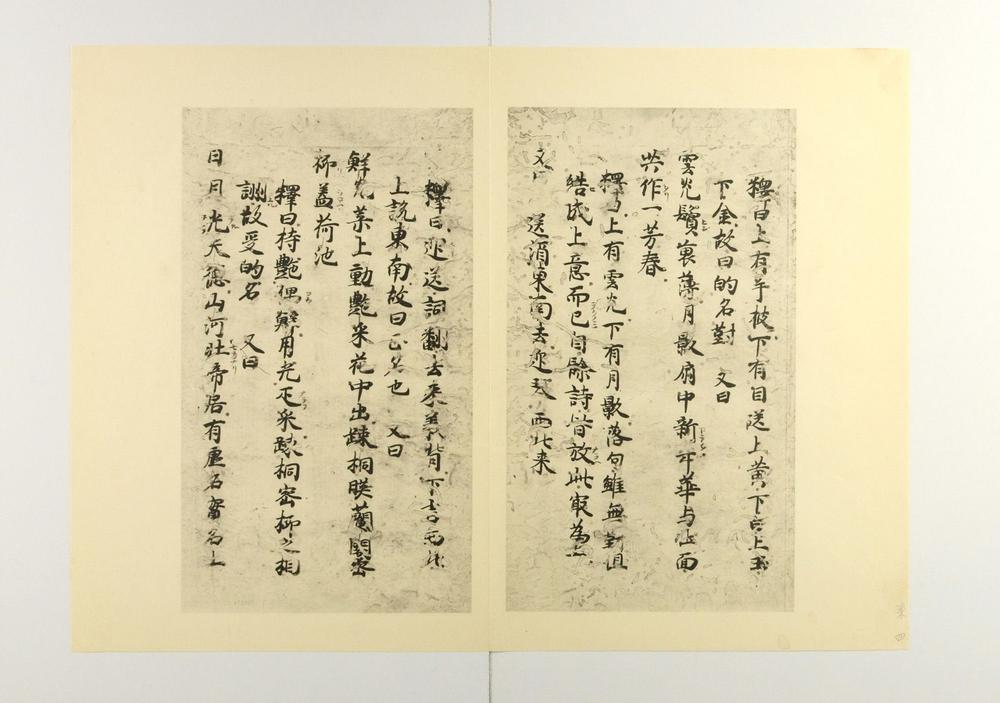 釋曰上有手披下有目送上黄下白上玉
下金故曰的名對 又曰
雲光鬢裏薄月影扇中新年華与妝面
共作一芳春
釋曰上有雲光下有月影落句雖無對但
結成上意而已自餘詩皆放此最為上
又曰
送酒東南去迎琴西北来
釋曰迎送詞翻去来義背下言西北
上説東南故曰正名也 又曰
鮮光葉上動艶彩花中出疎桐映蘭閣密
柳盖荷池
釋曰持艶偶鮮用光匹彩疎桐密柳之相
酬故受的名 又曰
日月光天德山河壮帝居有虚名